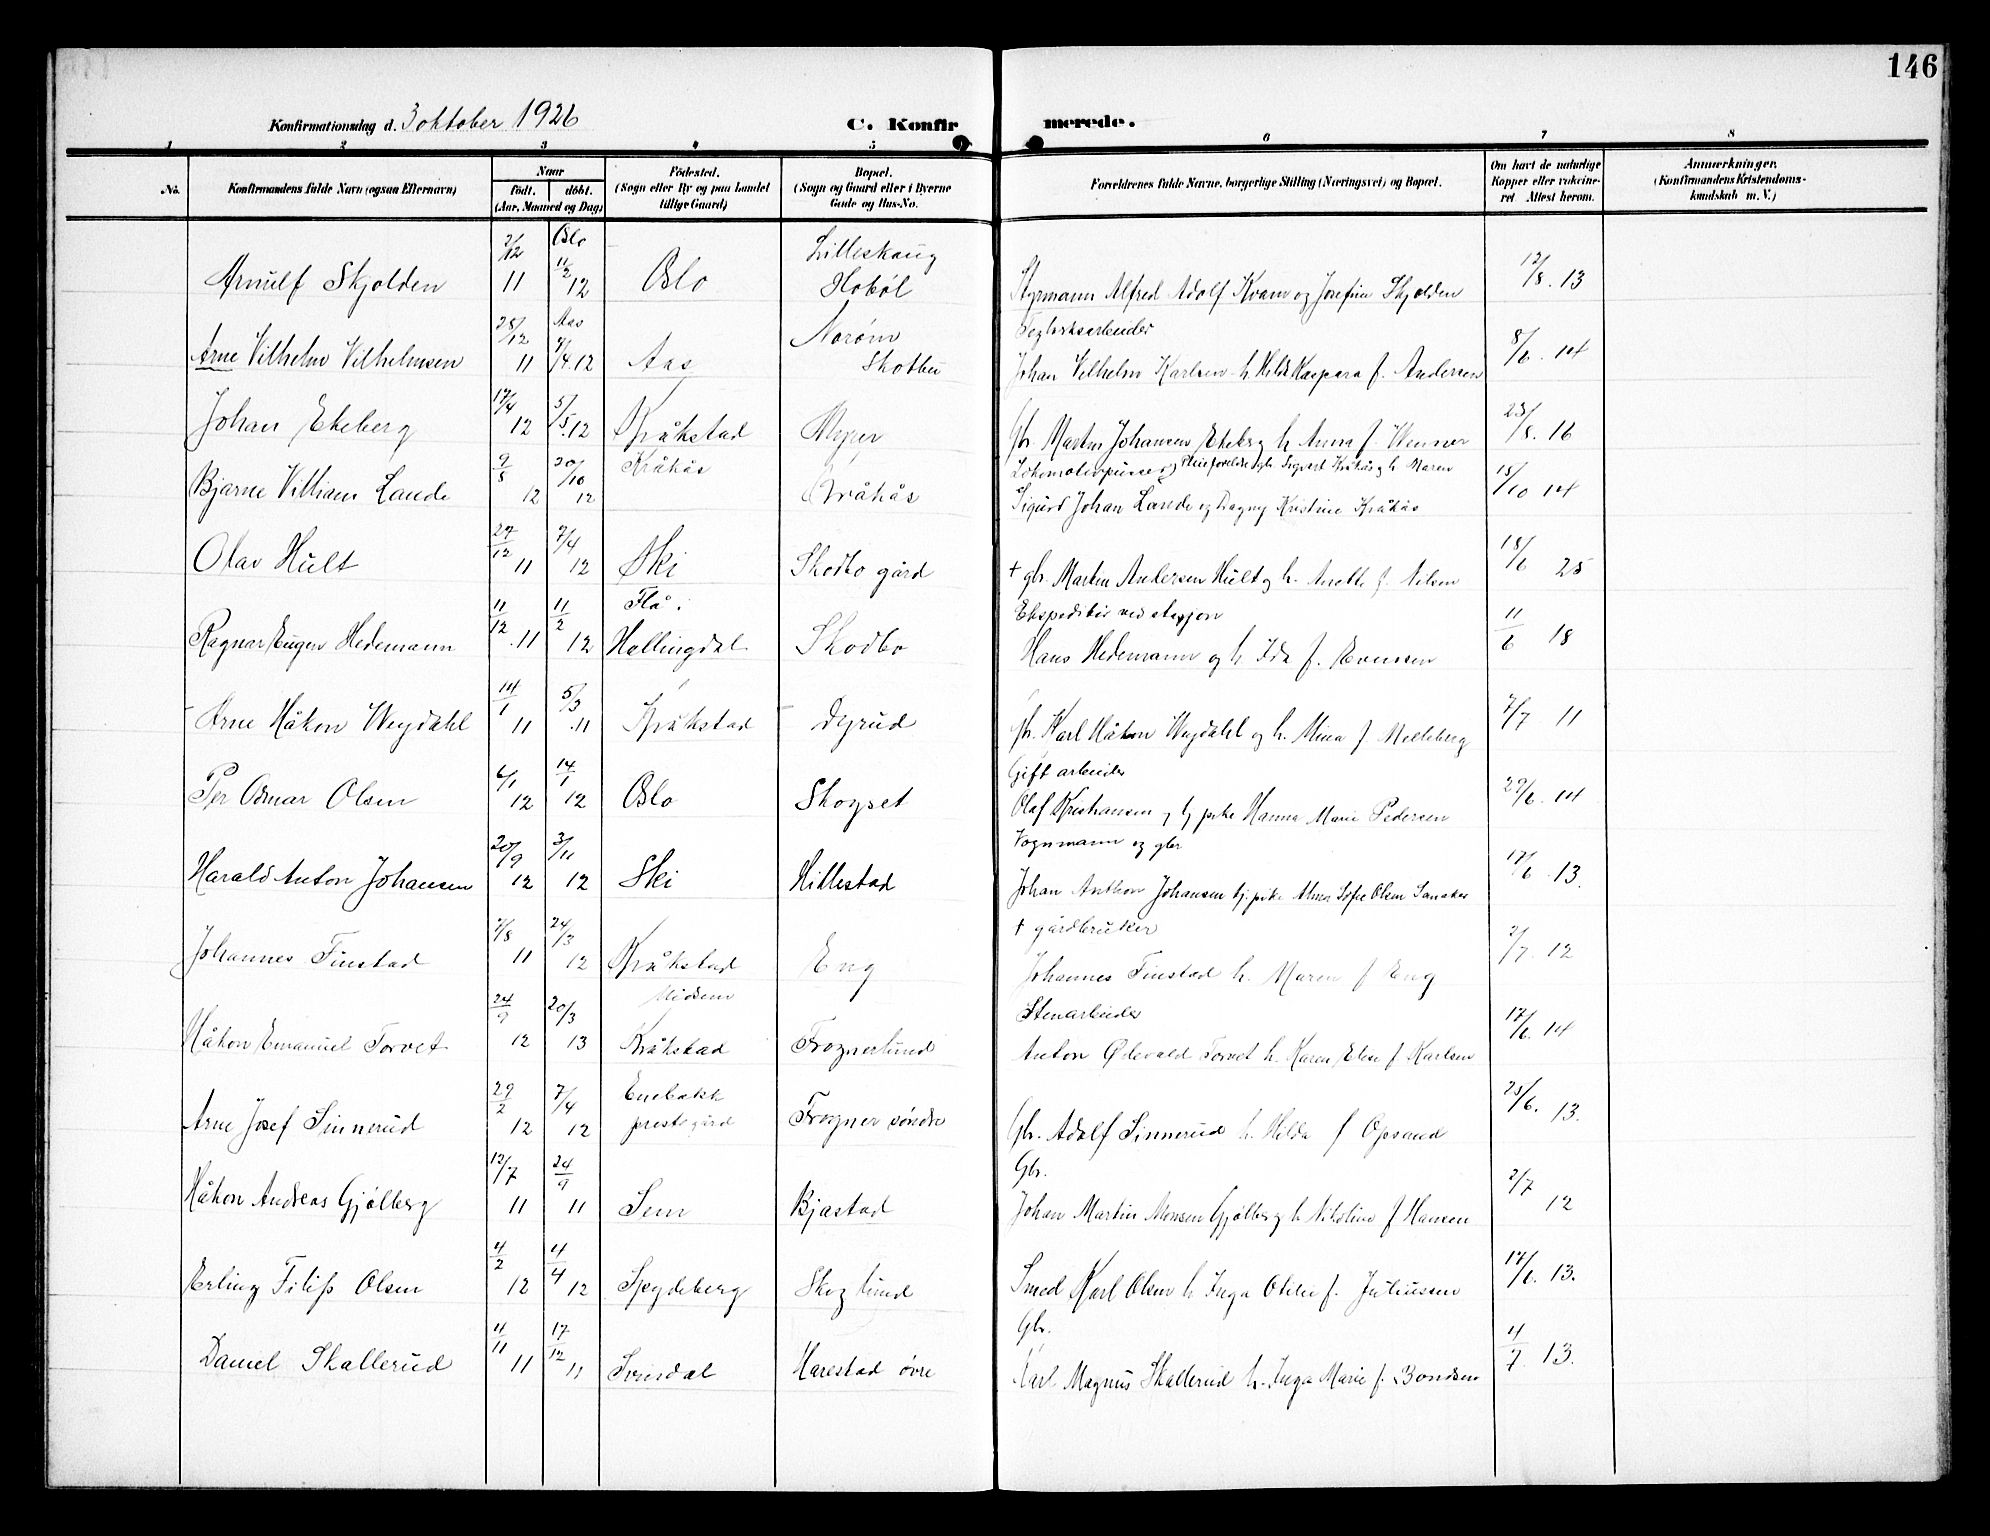 146
Konfirmationsdag d. 3 oktober 1926 C. Konfirmerede.
1 2 3 4 5 6 7 8
No. Konfirmandens fulde Navn (ogsaa Efternavn) Naar født. døbt. (Aar, Maaned og Dag) Fødested. (Sogn eller By og paa Landet tillige Gaard) Bopæl. (Sogn og Gaard eller i Byerne Gade og Hus-No. Forældrenes fulde Navne, borgerlige Stilling (Næringsvei) og Bopæl. Om havt de naturlige Kopper eller vakcineret Attest herom. Anmærkninger. (Konfirmandens Kristendomskundskab m. V.)
Arnulf Skjolden 2/12 11 Oslo 11/2 12 Oslo Lilleskaug Hobøl Styrmann Alfred Adolf Kvam og Josefine Skjolden 12/8. 13
Arne Vilhelm Vilhelmsen 28/12 11 Aas 7/4. 12 Aas Skotbu Johan Vilhelm Karlsen h. Hilda Kaspara f. Andersen 8/6. 14
Johan Ekeberg 17/4 12 5/5. 12 Kråkstad Myrer Gbr. Martin Johansen Ekeberg h. Anna f. Wenner 23/8. 16
Bjarne Villiam Lande 9/8 12 20/10 12 Kråkås Kråkås Lokomotivpusser og Pleieforeldre gbr. Sigvart Kråkås og h. Maren
Sigurd Johan Lande og Dagny Kristine Kråkås 15/10 14
Olav Hult 27/12 11 7/4 12 Ski Skodbo gård † gbr. Martin Andersen Hult og h. Anette f. Nilsen 18/6 25
Ragnar Eugen Hedemann 11/12. 11 11/2 12 Flå i Hallingdal Skodbo Ekspeditør ved stasjon
Hans Hedemann og h. Ida f. Evensen 11/6 18
Arne Håkon Wegdahl 14/1 11 5/3. 11 Kråkstad Dyrud gbr. Karl Håkon Wegdahl og h. Mina f. Melleberg 7/7 11
Per Osmar Olsen 6/1 12 14/1 12 Oslo Skogset Gift arbeider
Olaf Kristiansen og tj. pike Hanna Marie Pedersen 29/6. 14
Harald Anton Johansen 20/9 12 3/11 12 Ski Hillestad Vognmann og gbr
Johan Anthon Johansen tj. pike Alma Sofie Olsen Sanaker 17/6. 13.
Johannes Finstad 7/8 11 24/3 12 Kråkstad Eng † gårdbruker
Johannes Finstad h. Maren f. Eng 2/7. 12
Håkon Emanuel Torvet 24/9 12 20/3 13 Kråkstad Frognerlund Stenarbeider
Anton Edevald Torvet h. Karen Elise f. Karlsen 17/6. 14
Arne Josef Sinnerud 29/2 12 7/4 12 Enebakk prestegård Frogner søndre Gbr. Adolf Sinnerud h. Hilda f. Opsand 25/6. 13.
Håkon Andreas Gjølberg 12/7 11 24/9 11 Sem Bjastad Gbr.
Johan Martin Monsen Gjølberg h. Nikoline f. Hansen 2/7 12
Erling Filip Olsen 4/2 12 4/4 12 Spydeberg Skoglund Smed Karl Olsen h. Inga Otilie f. Juliussen 17/6. 13.
Daniel Skallerud 4/11 11 17/12 11 Svindal Harestad øvre Gbr.
Karl Magnus Skallerud h. Inga Marie f. Bondsen 4/7 13.